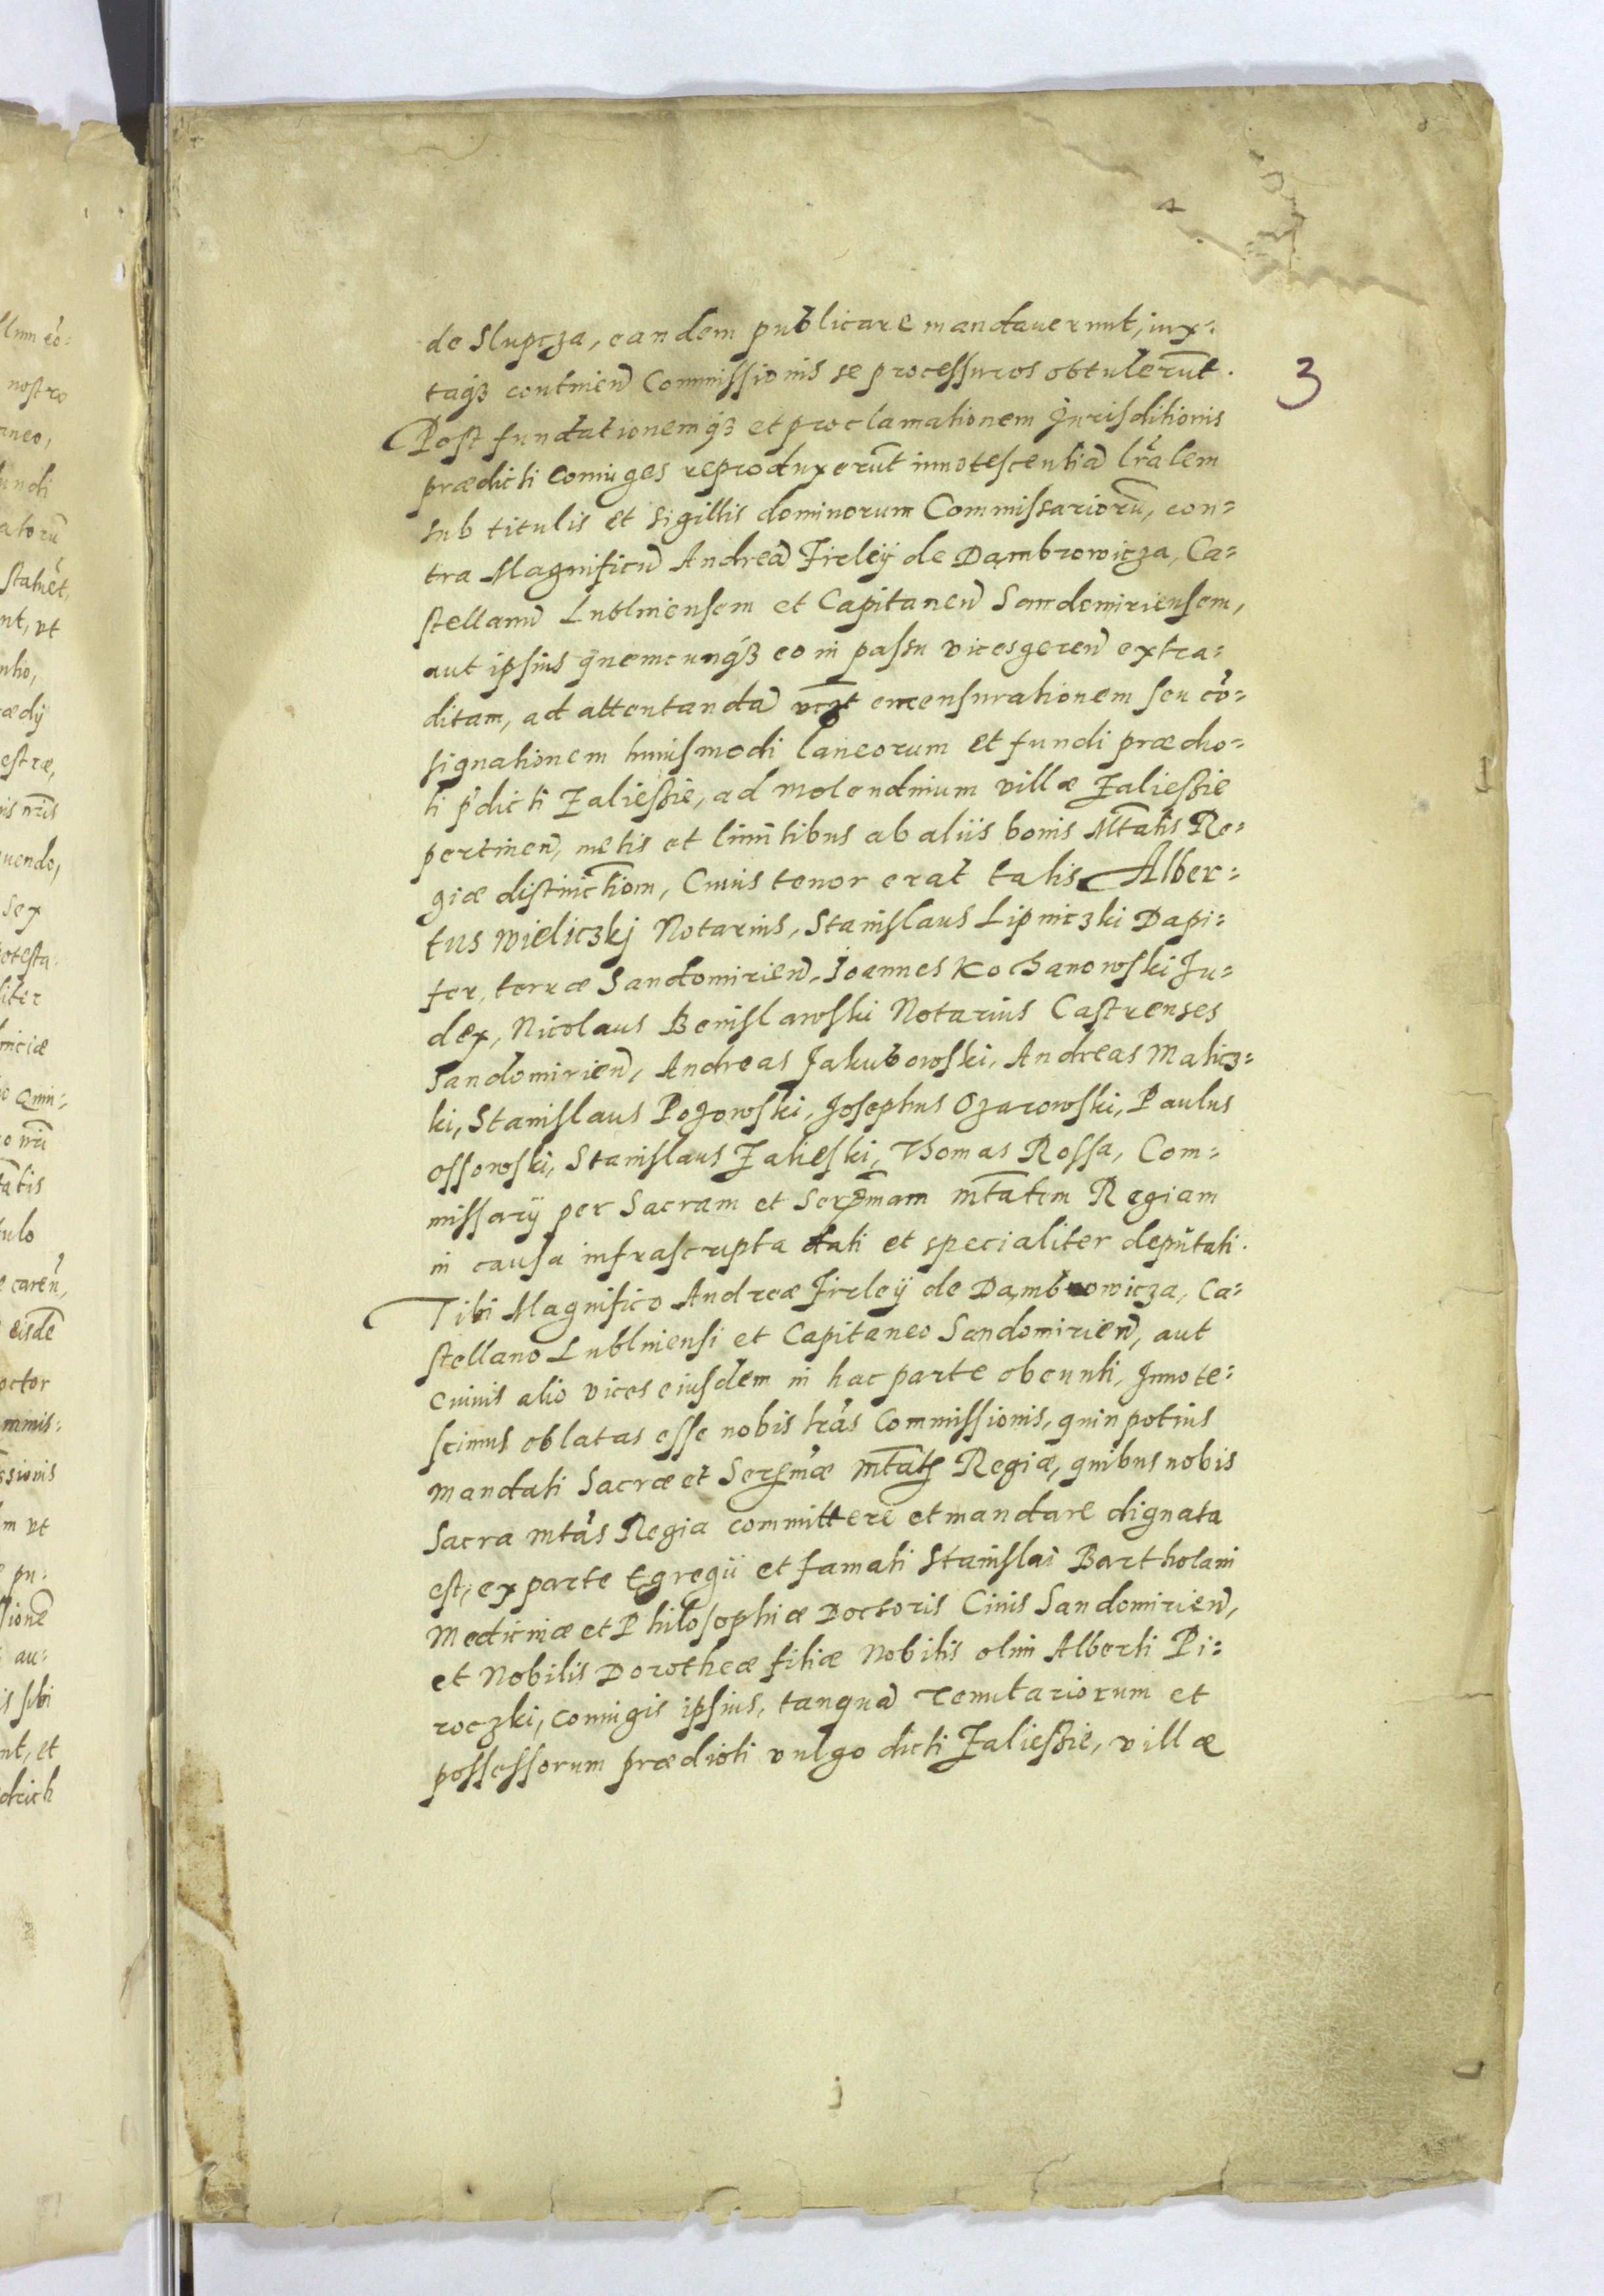 3
de Slupcza, eandem publicare mandauerunt, iux=
taq3 continen̄ Commissionis se processuros obtulerūt.
Post fundationemq3 et proclamationem Jurisditionis
prædicti coniuges reproduxerūt innotescentiā lr̄alem
sub titulis et sigillis dominorum Commissariorū, con=
tra Magnificū Andreā Firleÿ de Dambrowicza, Ca=
stellanū Lublinensem et Capitaneū Sandomiriensem,
aut ipsius quemcunq3 eo in passu vicesgeren̄ extra=
ditam, ad attentandā emensurationem seu cō=
signationem huiusmodi laneorum et fundi prædio=
ti p̄dicti Zaliessie, ad molendinum villæ Zaliessie
pertinen̄, metis et limitibus ab aliis bonis Mt̄atis Re=
giæ distinctiom̄, Cuius tenor erat talis Alber=
tus Wieliczkj Notarius, Stanislaus Lipniczki Dapi=
fer, terræ Sandomirien̄, Joannes Kochanowski Ju=
dex, Nicolaus Benislawski Notarius Castrenses
Sandomirien̄, Andreas Jakubowski, Andreas Malicz=
ki, Stanislaus Pozowski, Josephus Ozarowski, Paulus
Ossowski, Stanislaus Zalieski, Thomas Rossa, Com=
missarÿ per Sacram et Ser̄mam mt̄atem Regiam
in causa infrascripta dati et specialiter deputati.
Tibi Magnifico Andreæ Firleÿ de Dambrowicza, Ca=
stellano Lublinensi et Capitaneo Sandomirien̄, aut
cuiuis alio vices eiusdem in hac parte obeunti, Innote=
scimus oblatas esse nobis lr̄as Commissionis, quin potius
mandati Sacræ et Ser̄mæ mt̄atis Regiæ, quibus nobis
Sacra mt̄as Regia committere et mandare dignata
est, ex parte Egregii et famati Stanislai Bartholani
Medicinæ et Philosophiæ Doctoris Ciuis Sandomirien̄,
et Nobilis Dorotheæ filiæ Nobilis olim Alberti Pi=
roczki, coniugis ipsius, tanquā Tenutariorum et
possessorum prædioti vulgo dicti Zaliessie, villæ